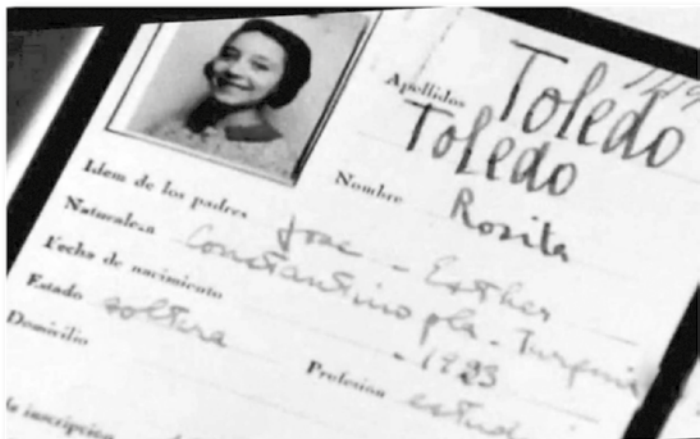 Apellidos Toledo
Toledo
Nombre Rosita
Idem de los padres Jose - Esther
Naturaleza Constantinopla - Turquia
Fecha de nacimiento - 1923
Estado soltera
Profesion
Domicilio
inscripción